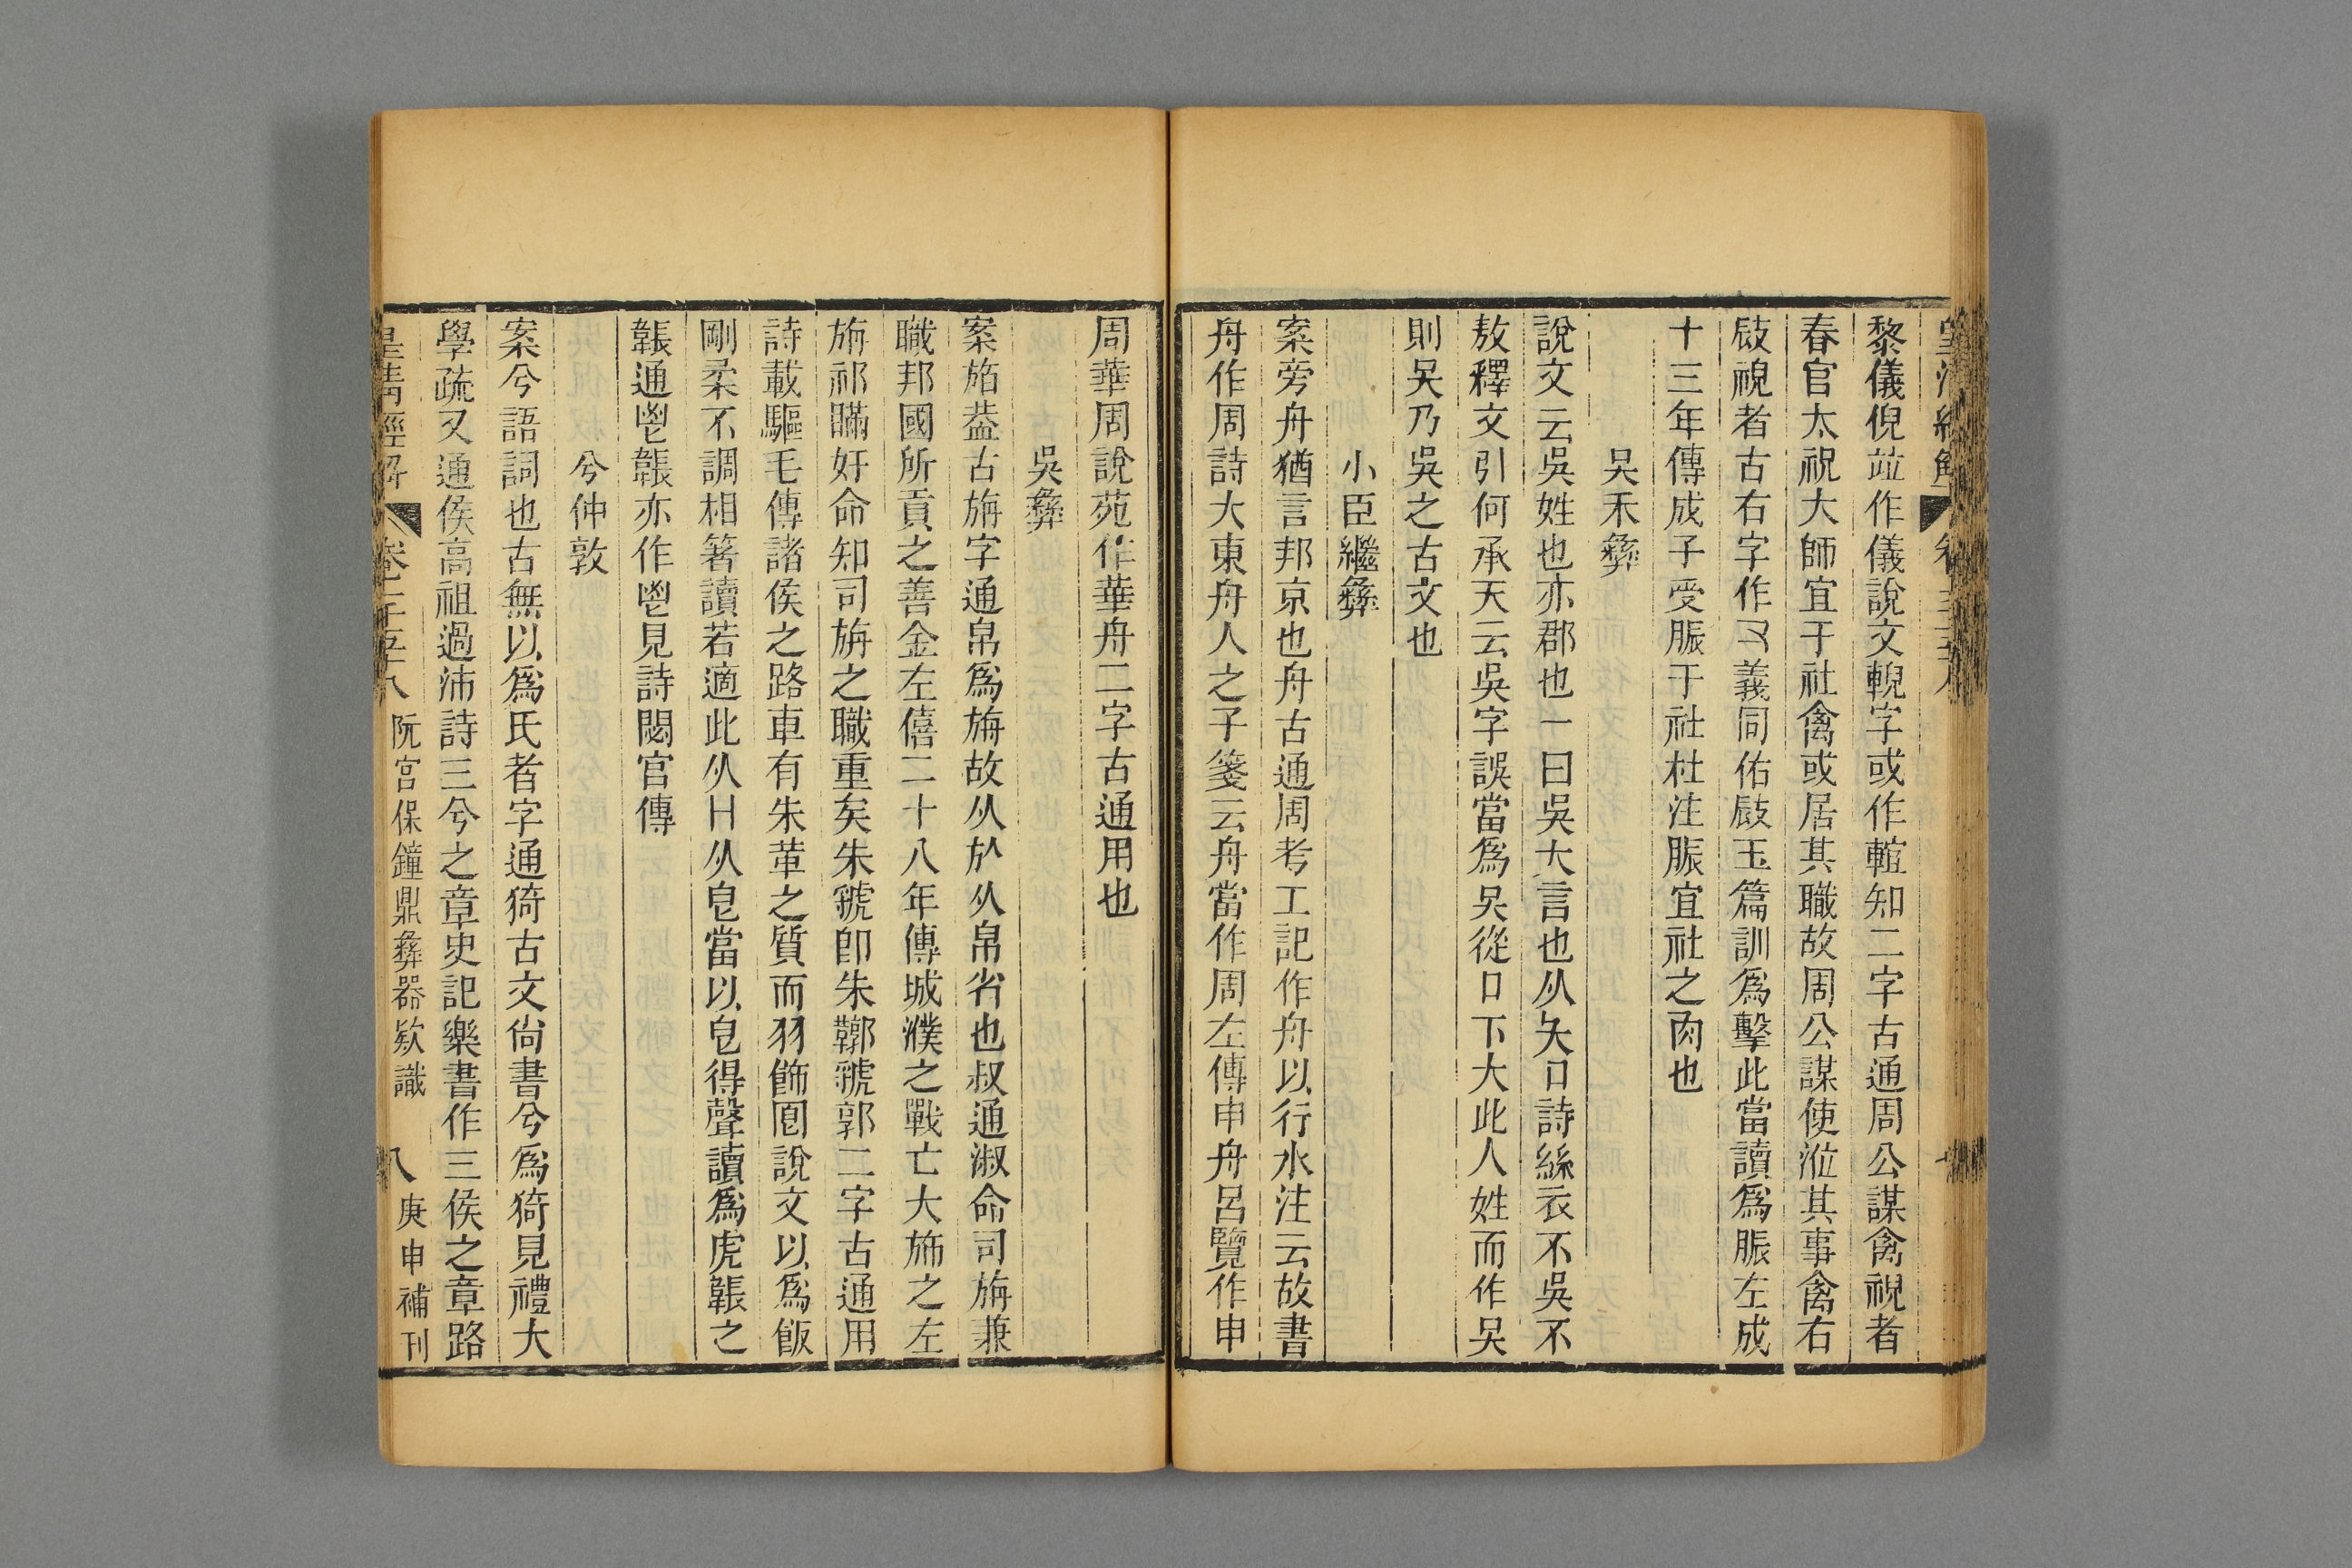 黎儀倪竝作儀說文輗字或作輨知二字古通周公謀禽祝者
春官大祝大師宜于社禽或居其職故周公謀使涖其事禽右
敐祝者古右字作又義同佑敐玉篇訓爲擊此當讀爲脤左成
十三年傳成子受脤于社杜注脤宜社之肉也
吳禾彝
說文云吳姓也亦郡也一曰吳大言也从夨口詩絲衣不吳不
敖釋文引何承天云吳字誤當爲吴從口下大此人姓而作吴
則吴乃吳之古文也
小臣繼彝
案旁舟猶言邦京也舟古通周考工記作舟以行水注云故書
舟作周詩大東舟人之子箋云舟當作周左傳申舟呂覽作申
周華周說苑作華舟二字古通用也
吳彝
案㫋葢古旃字通帛爲旃故从㫃从帛省也叔通淑命司旃兼
職邦國所貢之善金左僖二十八年傳城濮之戰亡大旆之左
旃祁瞞奸命知司旃之職重矣朱虢卽朱鞹虢郭二字古通用
詩載驅毛傳諸侯之路車有朱革之質而羽飾圁說文以爲飯
剛柔不調相箸讀若適此从H从皀當以皀得聲讀爲虎韔之
韔通鬯韔亦作鬯見詩閟宮傳
兮仲敦
案兮語詞也古無以爲氏者字通猗古文尙書兮爲猗見禮大
學疏又通侯高祖過沛詩三兮之章史記樂書作三侯之章路
皇淸經解
卷一千五十八
阮宮保鐘鼎彝器欵識
八
庚申補刊